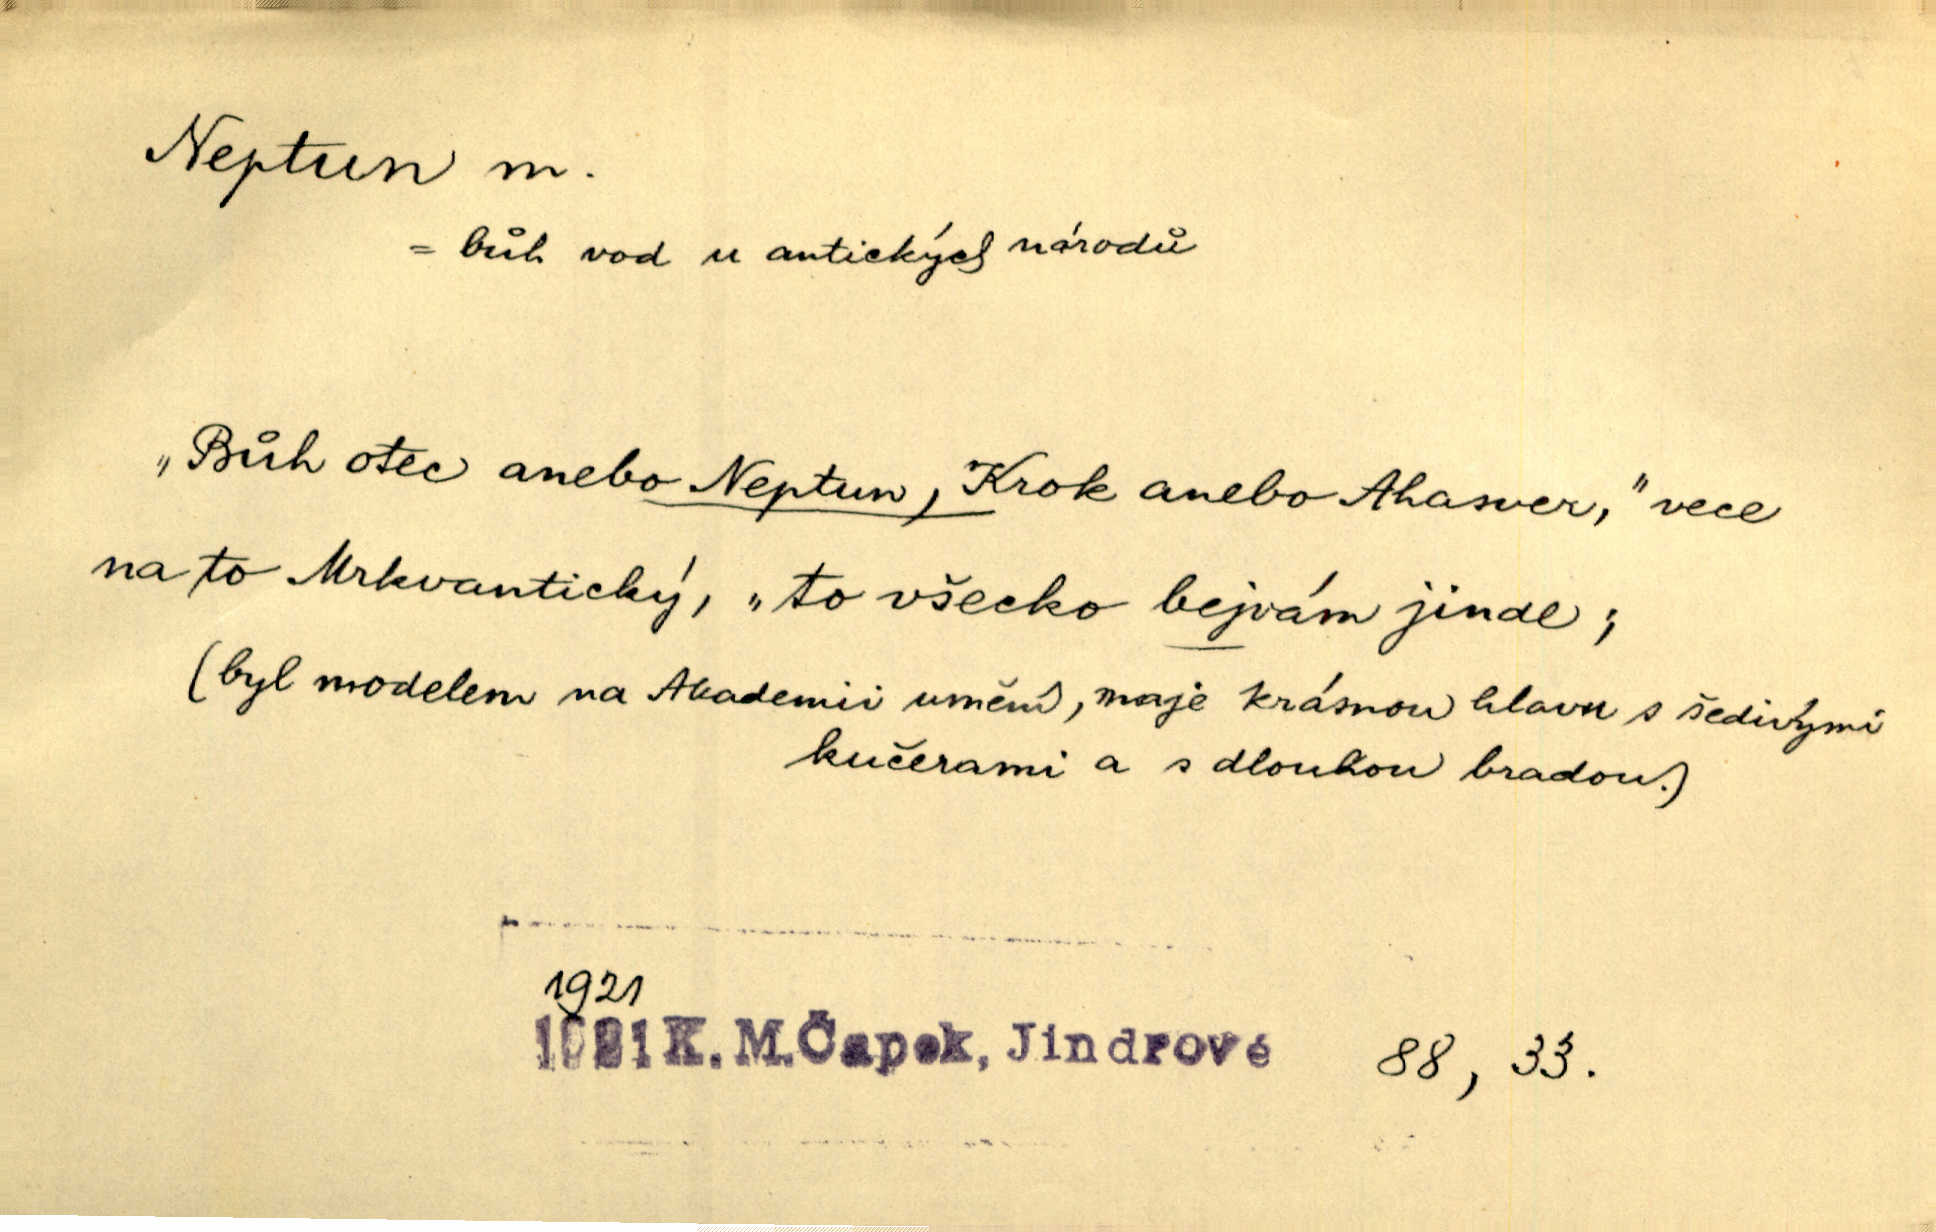 Neptun m.
= bůh vod u antických národů
„Bůh otec anebo Neptun, Krok anebo Ahasver,“ vece
na to Mrkvantický, „to všecko bejvám jinde;
(byl modelem na Akademii umění, maje krásnou hlavu s šedivými
kučerami a s dlouhou bradou.)
1921
1921 K. M. Čapek, Jindrové 88, 33.